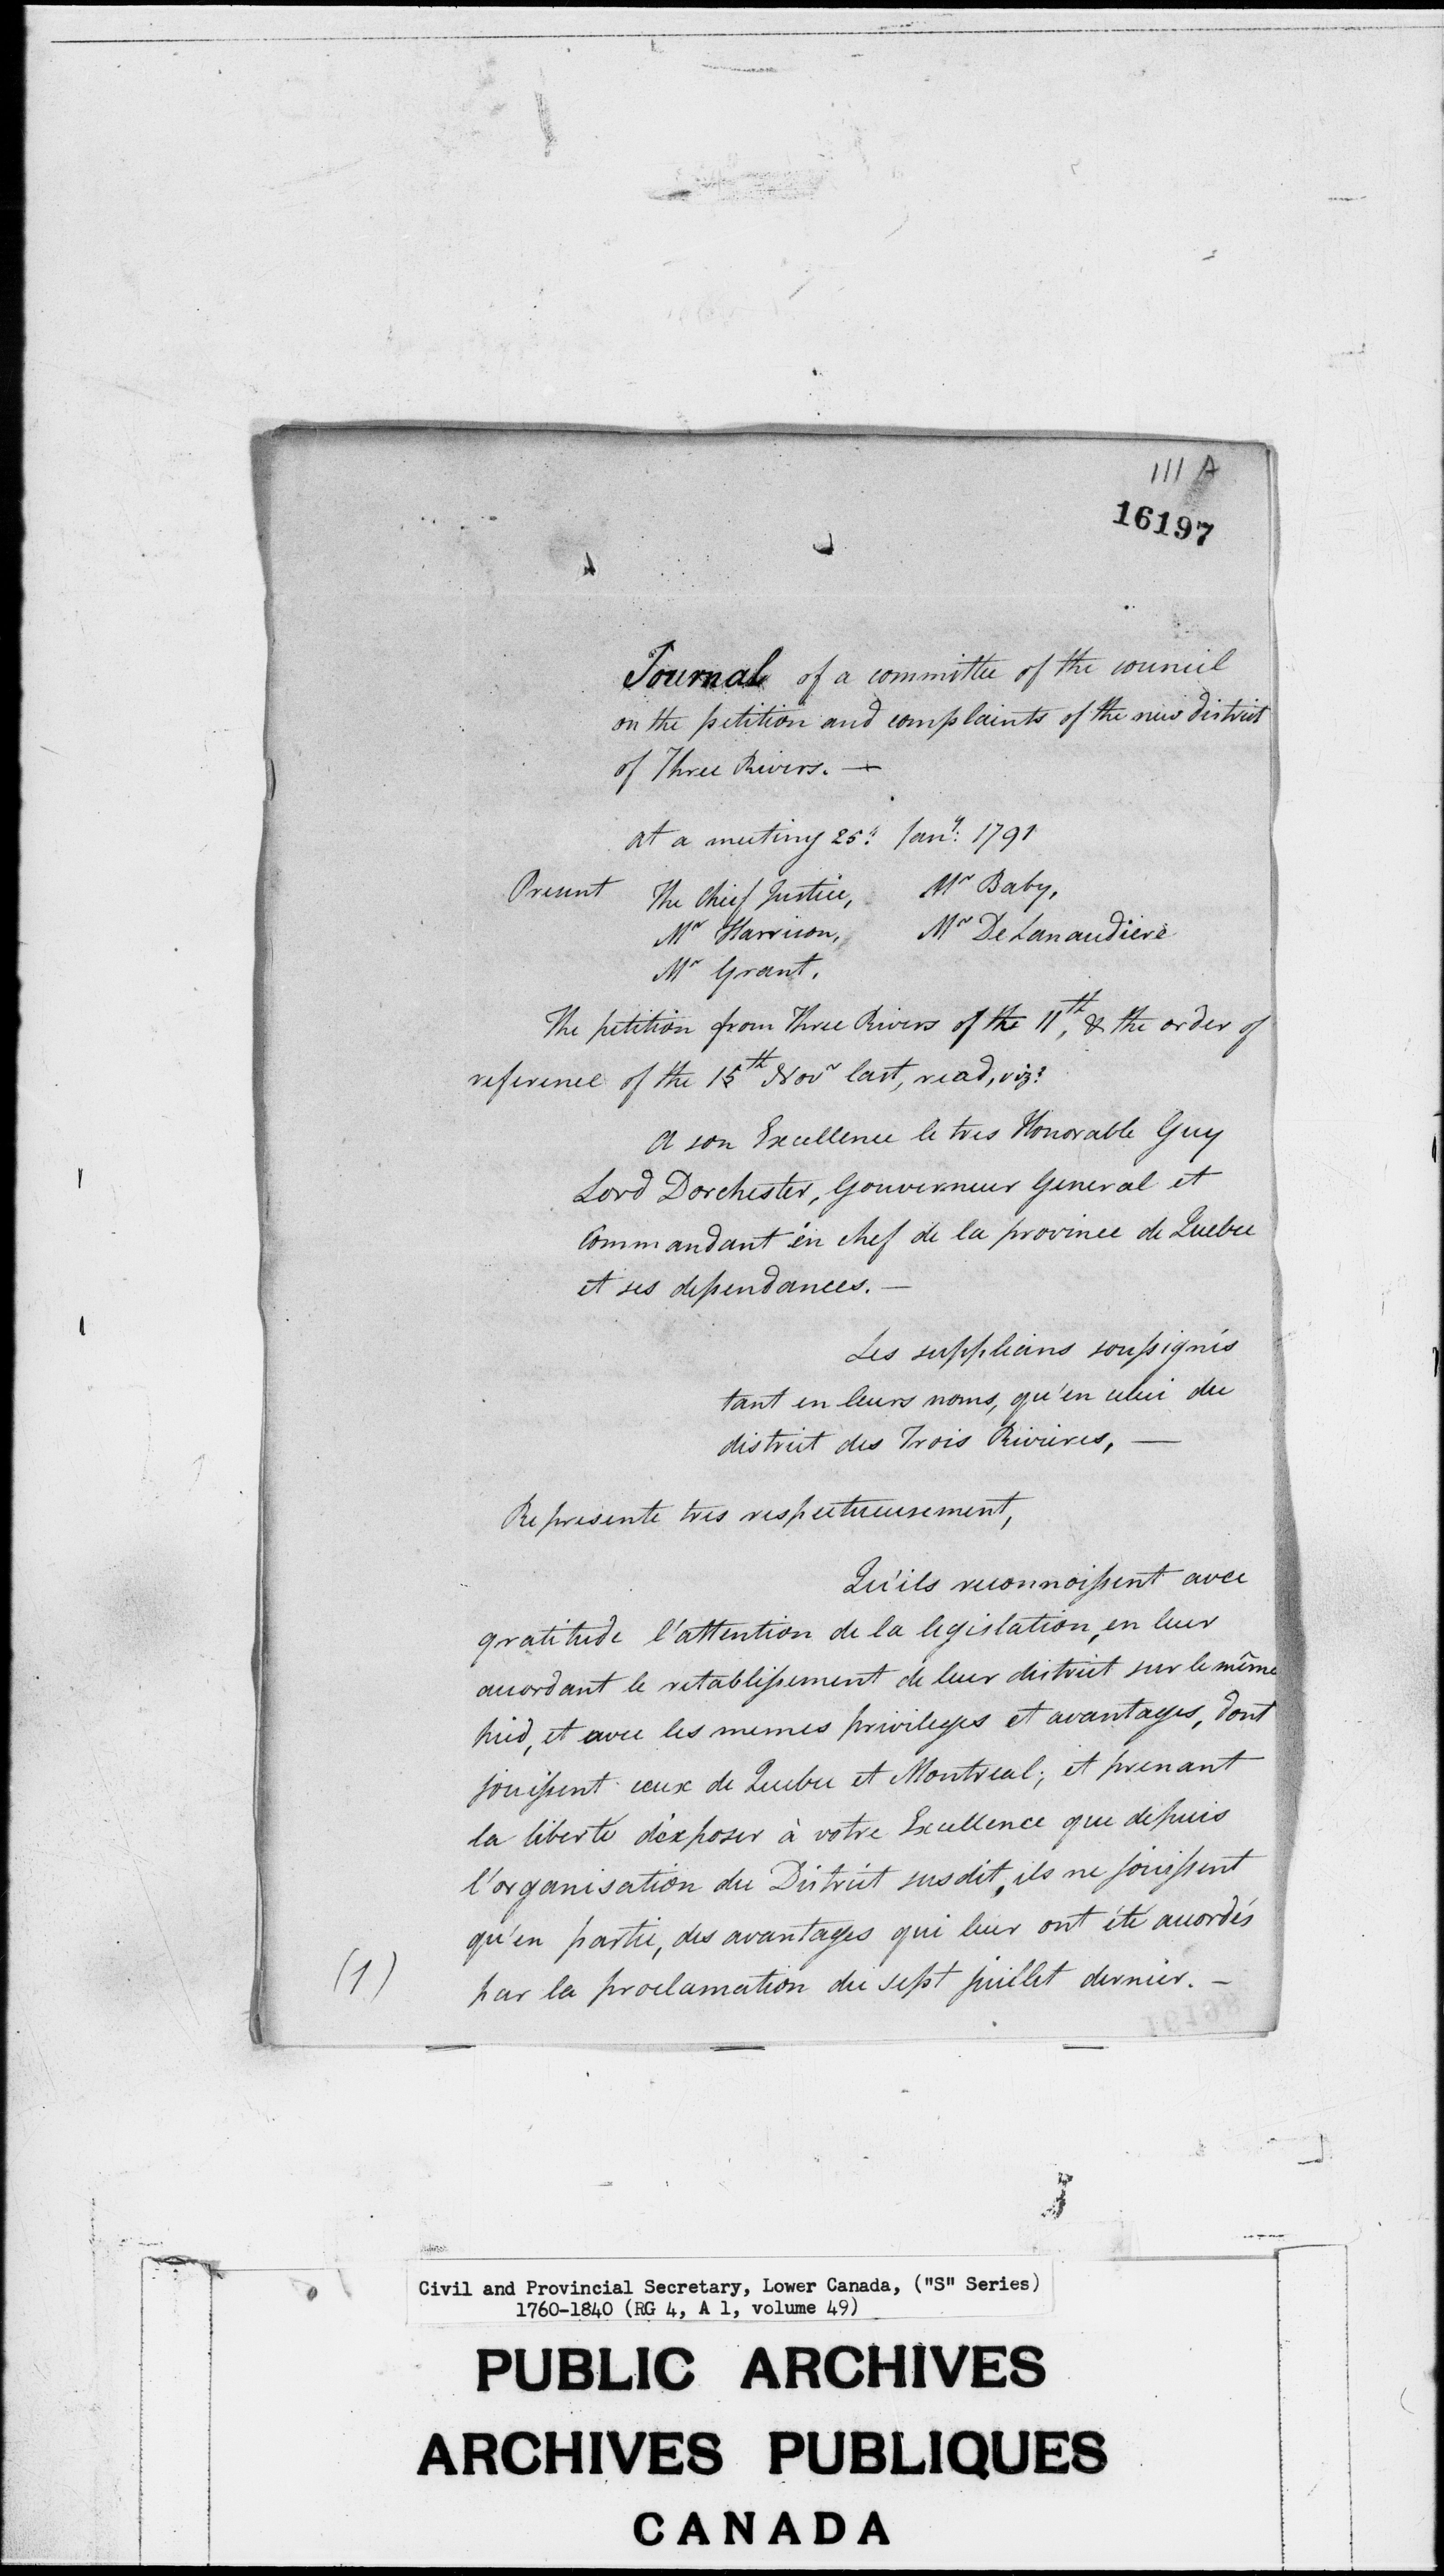 111 A
16197
Journal of a committee of the council
on the petition and complaints of the new district
of Three Rivers. —
at a meeting 25th Jany: 1791
Present The Chief Justice, Mr Baby,
Mr Harrison, Mr De Lanaudiere
Mr Grant.
The petition from Three Rivers of the 11th, & the order of
reference of the 15th Novr last, read, viz:
A son Excellence le tres Honorable Guy
Lord Dorchester, Gouverneur General et
Commandant en chef de la province de Quebec
et ses dependances. —
Les supplians soussignés
tant en leurs noms, qu'en celui du
district des Trois Rivieres, —
Represente tres respectueusement,
Qu'ils reconnoissent avec
gratitude l'attention de la legislation, en leur
accordant le retablissement de leur district sur le même
pied, et avec les memes privileges et avantages, dont
jouissent ceux de Quebec et Montreal; et prenant
la liberté d'exposer à votre Excellence que depuis
l'organisation du District susdit, ils ne jouissent
qu'en partie, des avantages qui leur ont été accordés
(1) par la proclamation du sept juillet dernier. —
16198
Civil and Provincial Secretary, Lower Canada, ("S" Series)
1760-1840 (RG 4, A 1, volume 49)
PUBLIC ARCHIVES
ARCHIVES PUBLIQUES
CANADA